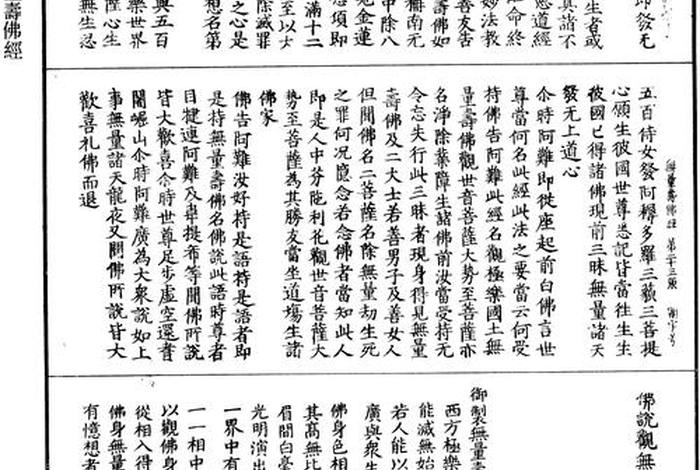 即發无
生者或
真諸不
惡道經
命終
妙法教
善友告
壽佛如
南无
中除八
見金蓮
念項即
滿十二
至以大
除滅罪
之心是
想名第
與五百
樂世界
心生
無生忍
壽佛經
五百侍女發阿耨多羅三藐三菩提
心願生彼國世尊悉記皆當往生生
彼國已得諸佛現前三昧無量諸天
發无上道心
尒時阿難即從座起前白佛言世
尊當何名此經此法之要當云何受
持佛告阿難此經名觀極樂國土無
量壽佛觀世音菩薩大勢至菩薩亦
名淨除業障生諸佛前汝當受持无
令忘失行此三昧者現身得見無量
壽佛及二大士若善男子及善女人
但聞佛名二菩薩名除無量劫生死
之罪何况憶念若念佛者當知此人
即是人中芬陁利花觀世音菩薩大
勢至菩薩為其勝友當坐道塲生諸
佛家
佛告阿難汝好持是語持是語者即
是持無量壽佛名佛說此語時尊者
目犍連阿難及韋提希等聞佛所說
皆大歡喜尒時世尊足步虛空還耆
闍崛山尒時阿難廣為大衆說如上
事無量諸天龍夜叉聞佛所說皆大
歡喜礼佛而退
佛說觀無
御製無量
西方極樂
能滅無始
若人能以
廣與衆生
佛身色相
其高無比
眉間白毫
光明演出
一界中有
一一相中
以觀佛身
從相入得
佛身無量
有憶想者